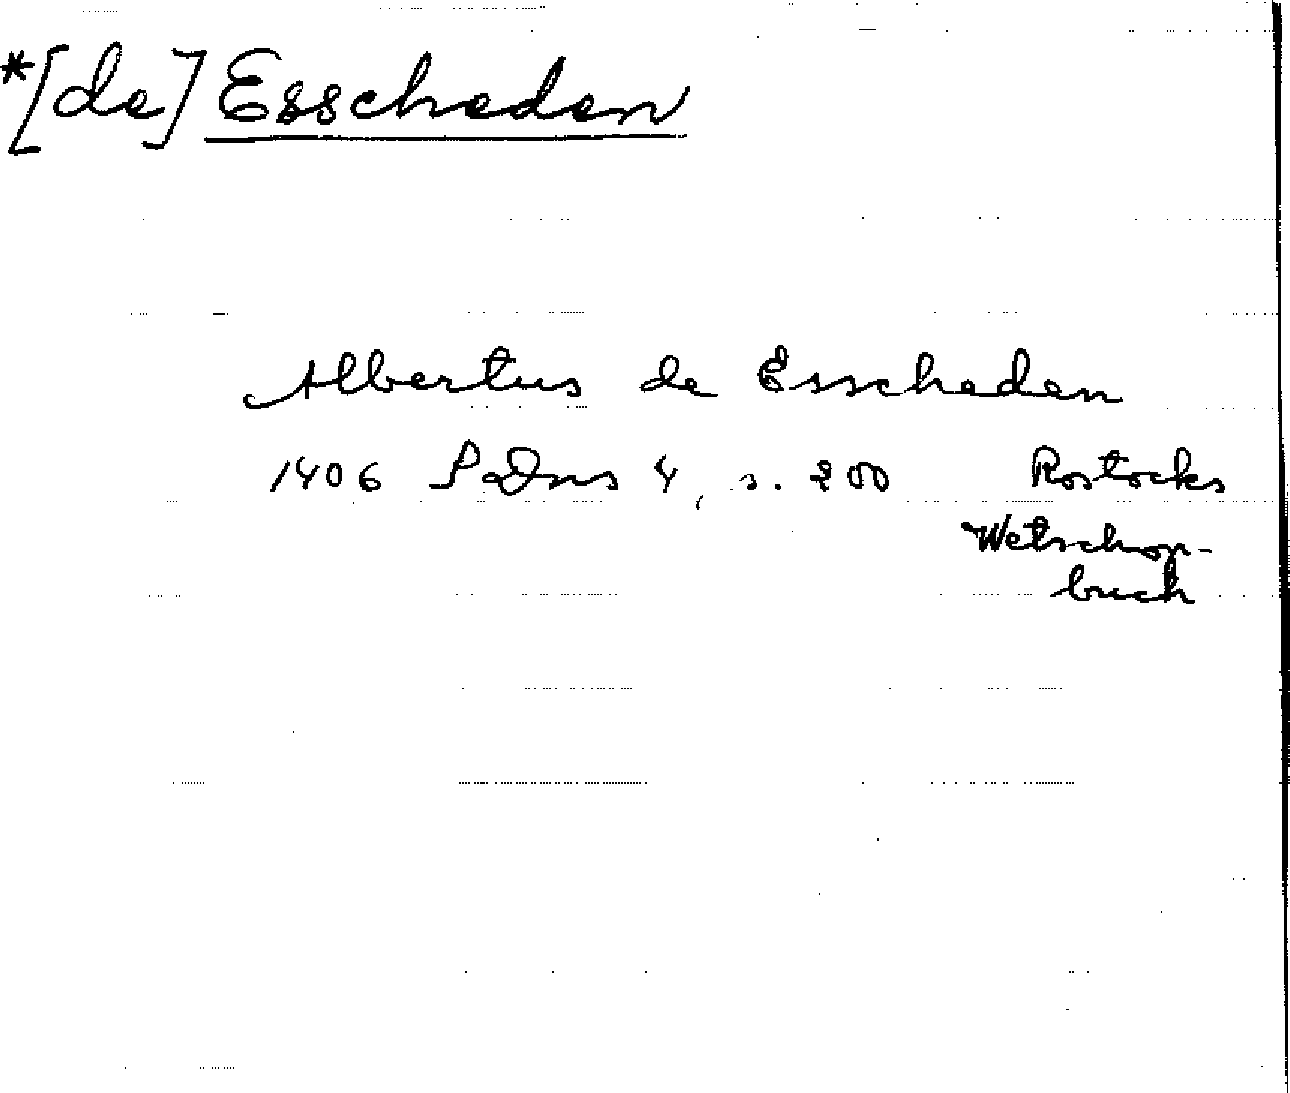 *[de] Esscheden
Albertus de Esscheden
1406 SaDns 4, s. 200 Rostocks
Wetschop-
buch